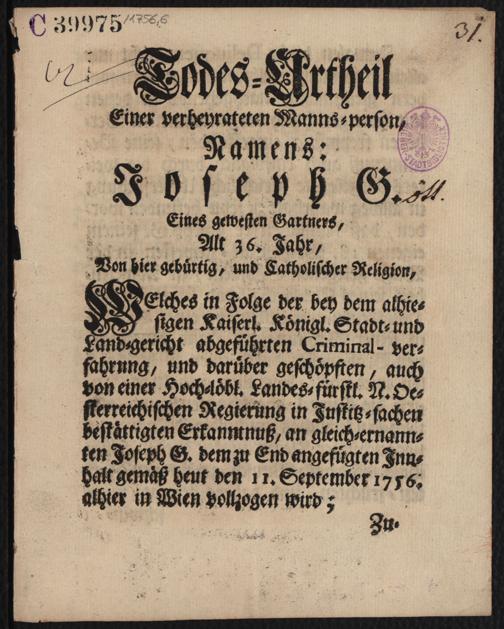 C 39975
11756,6
31.
Todes-Urtheil
Einer verheyrateten Manns-person,
Namens:
Joseph G.öll.
Eines gewesten Gartners,
Alt 36. Jahr,
Von hier gebürtig, und Catholischer Religion,
WElches in Folge der bey dem alhie-
sigen Kaiserl. Königl. Stadt- und
Land-gericht abgeführten Criminal-ver-
fahrung, und darüber geschöpften, auch
von einer Hoch-löbl. Landes-fürstl. N. Oe-
sterreichischen Regierung in Justitz-sachen
bestättigten Erkanntnuß, an gleich-ernann-
ten Joseph G. dem zu End angefügten Inn-
halt gemäß heut den 11. September 1756.
alhier in Wien vollzogen wird;
Zu-